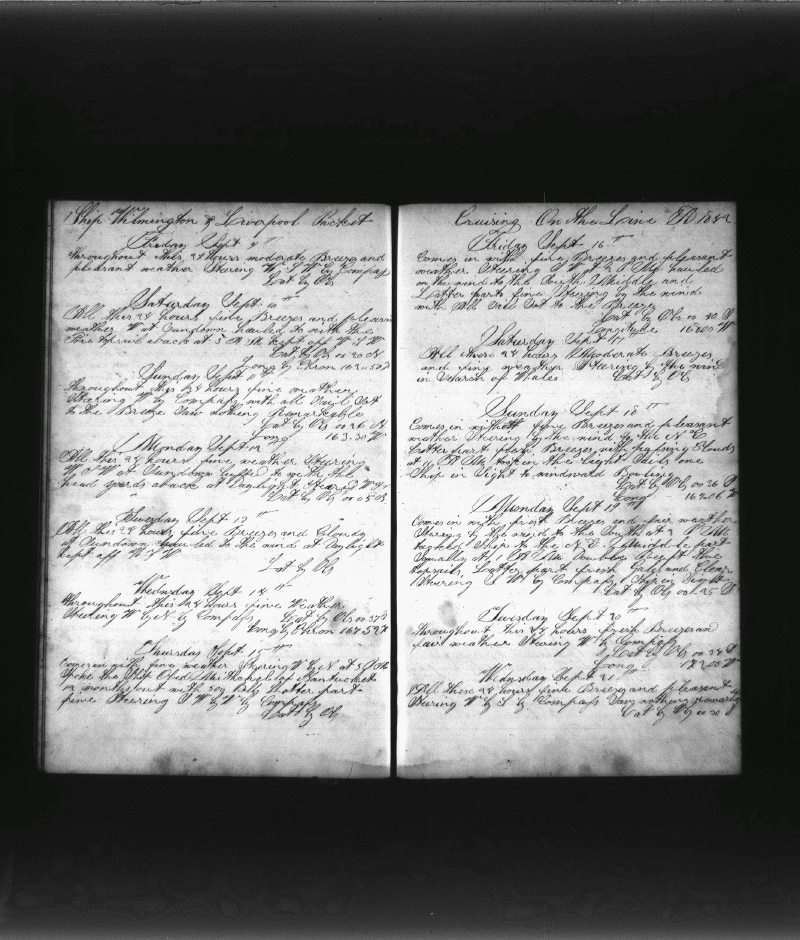 Ship Wilmington & Liverpool Packet
Friday Sept 9th
Throughout this 24 hours moderate Breezes and
pleasant weather Steering W by S W by Compass
Lat by Ob
Saturday Sept 10th
All this 24 hours fine Breezes and pleasant
weather W at Sundown hauled to with the
topsail aback at 5 A M kept off W S W
Lat by Ob 00 20 N
Long by Chrom 162.50
Sunday Sept 11th
Throughout this 24 hours fine weather
Steering W by Compass with all Sail Out
to the Breeze Saw nothing remarkable
Lat by Ob 00 26 N
Long 163.30 W
Monday Sept 12
All this 24 hours fine weather Steering
W S W at Sundown to with the
head yards aback at Daylight Steared W
Lat by Ob 00 05
Tuesday Sept 13th
All this 24 hours fine Breezes and Cloudy
at Sundown hauled to the wind at Daylight
kept off W S W
Lat by Ob
Wednsday Sept 14th
Throughout this 24 hours fine Weather
Steering W by N by Compass Lat by Ob 00 37
Long by Chrom 167.52 W
Thursday Sept 15th
Comes in with fine weather Steering W by N at 5
Spoke the Ship Obed Mitchel of Nantucket
months out with Latter part
fine Steering S W by W by Compass
Lat by Ob
Cruising On the Line AD 1842
Friday Sept 16th
Comes in with fine Breezes and pleasant
weather Steering S W at 2 P M hauled
on the wind to the South Middle and
Latter part fine Steering by the wind
with All Sail Out to the Breeze
Lat by Ob 00 40 S
Longitude
Saturday Sept 17
All these 24 hours Moderate Breezes
and fine weather Steering by the wind
in Search of Whales Lat by Ob
Sunday Sept 18th
Comes in with fine Breezes and pleasant
weather Steering by the wind to the N E
Latter part fresh Breezes with passing Clouds
at in the Light Sails one
Ship in Sight to windward
Lat by Ob 00 36 S
Long 169.06 W
Monday Sept 19th
Comes in with first Breezes and fair weather
Steering by the wind to the South at
tacked Ship to the N E Middle part
Squally at 1 A M Double Reeft the
topsails Latter part fresh Gales and Clear
Steering S W by Compass Ship in Sight
Lat by Ob 001.25 S
Tuesday Sept 20th
Throughout this 24 hours fresh Breezes and
fair weather Steering W by Compass
Lat by Ob 00 34 S
Long 172.00 W
Wensday Sept 21
All these 24 hours fine Breezes and pleasant
Steering W by S by Compass Saw nothing remarkable
Lat by Ob 00 30 S